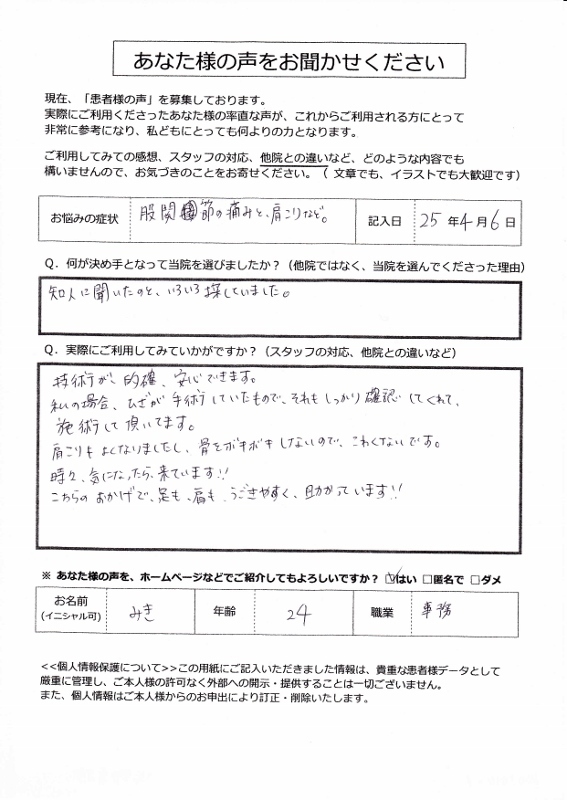 あなた様の声をお聞かせください
現在、「患者様の声」を募集しております。
実際にご利用くださったあなた様の率直な声が、これからご利用される方にとって
非常に参考になり、私どもにとっても何よりの力となります。
ご利用してみての感想、スタッフの対応、他院との違いなど、どのような内容でも
構いませんので、お気づきのことをお寄せください。（ 文章でも、イラストでも大歓迎です）
お悩みの症状 股関節の痛みと、肩こりなど。 記入日 25 年 4 月 6 日
Q．何が決め手となって当院を選びましたか？（他院ではなく、当院を選んでくださった理由）
知人に聞いたのと、いろいろ探していました。
Q．実際にご利用してみていかがですか？（スタッフの対応、他院との違いなど）
技術が、的確、安心できます。
私の場合、ひざが手術していたもので、それもしっかり確認してくれて、
施術して頂いてます。
肩こりもよくなりましたし、骨をボキボキしないので、こわくないです。
時々、気になったら、来ています!!
こちらのおかげで、足も、肩も、うごきやすく、助かっています!!
※ あなた様の声を、ホームページなどでご紹介してもよろしいですか？ ☑はい □匿名で □ダメ
お名前 みき 年齢 24 職業 事務
(イニシャル可)
<<個人情報保護について>>この用紙にご記入いただきました情報は、貴重な患者様データとして
厳重に管理し、ご本人様の許可なく外部への開示・提供することは一切ございません。
また、個人情報はご本人様からのお申出により訂正・削除いたします。